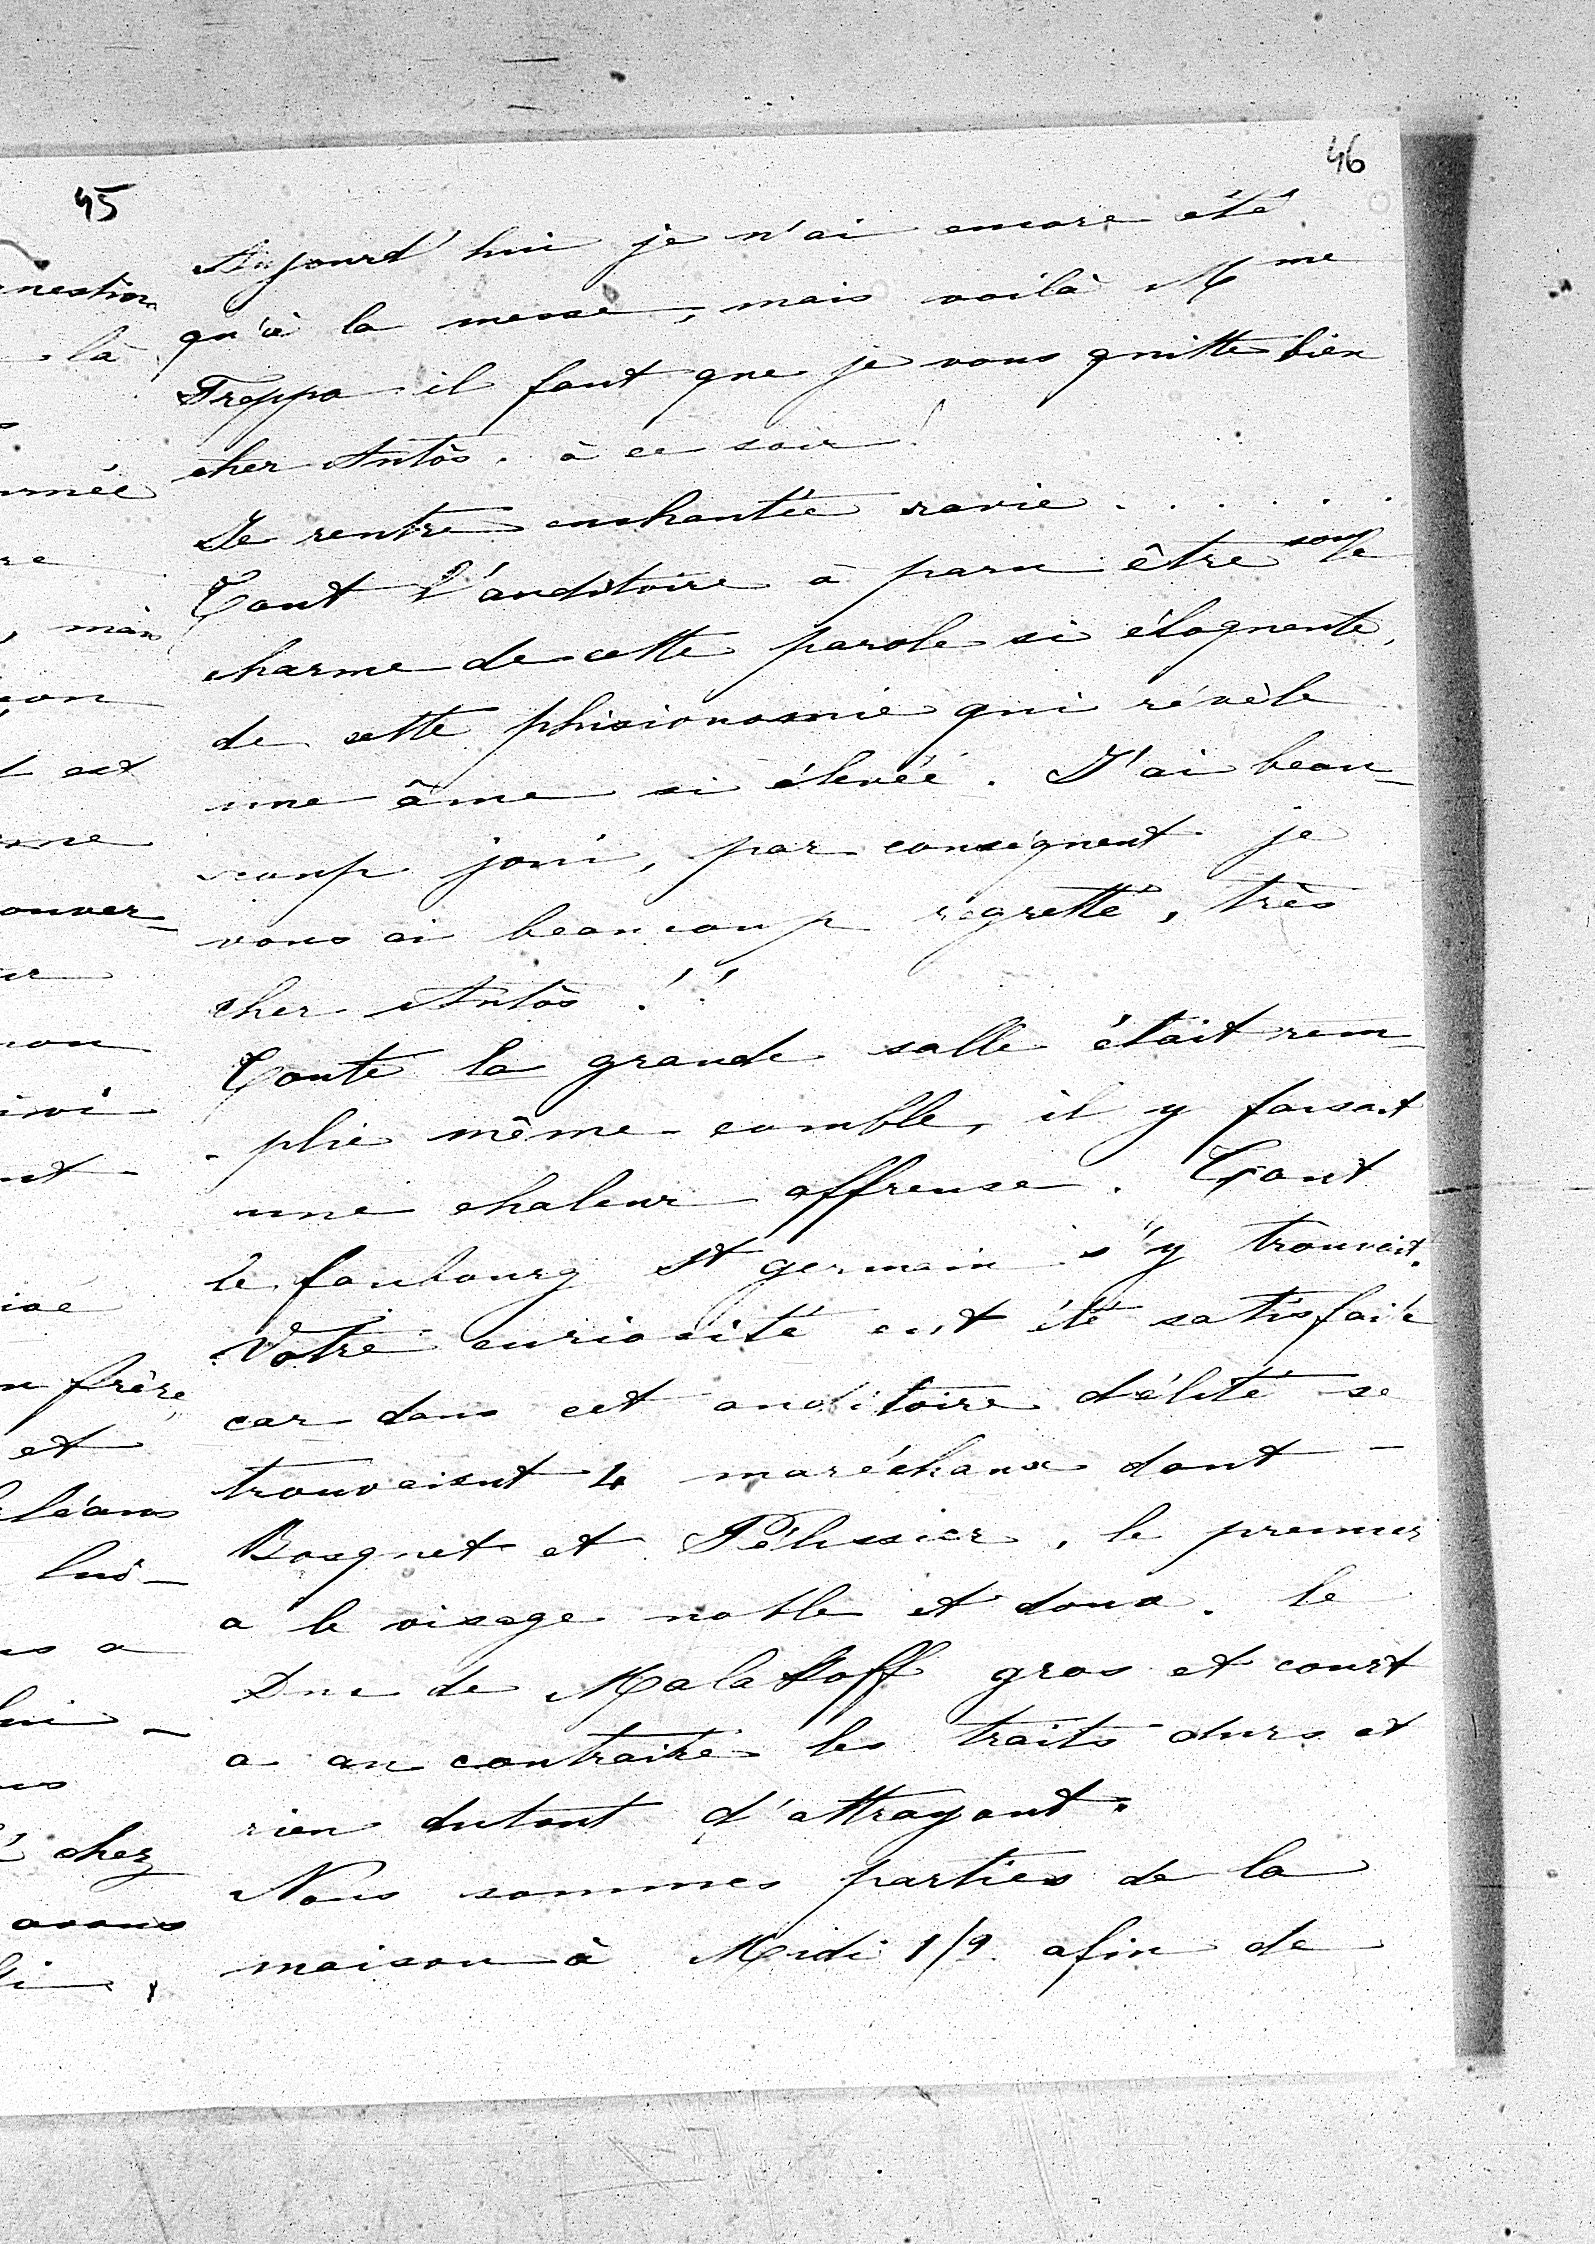 46
45
Aujourd'hui je n'ai encore été
qu'à la messe, mais voilà Mme
Treppa il faut que je vous quitte bien
cher Antos. à ce soir!
Je rentre enchantée ravie . . . . . .
Tout l'auditoire à paru être sous le
charme de cette parole si éloquente,
de cette phisionomie qui révèle
une âme si élevée. J'ai beau-
coup joui, par conséquent je
vous ai beaucoup regretté, très
cher Antos !!
Toute la grande salle était rem-
plie même comble, il y faisait
une chaleur affreuse. Tout
le faubourg St germain s'y trouvait.
Votre curiosité eut été satisfaite
car dans cet auditoire d'élite se
trouvaient 4 maréchaux dont -
Bosquet et Pélissier, le premier
a le visage noble et doux. le
Duc de Malakoff gros et court
a au contraire les traits durs et
rien dutout d'attrayant.
Nous sommes parties de la
maison à Midi 1/2 afin de
là
est
ouver-
frère
et
léans
lui-
a
chez
avons